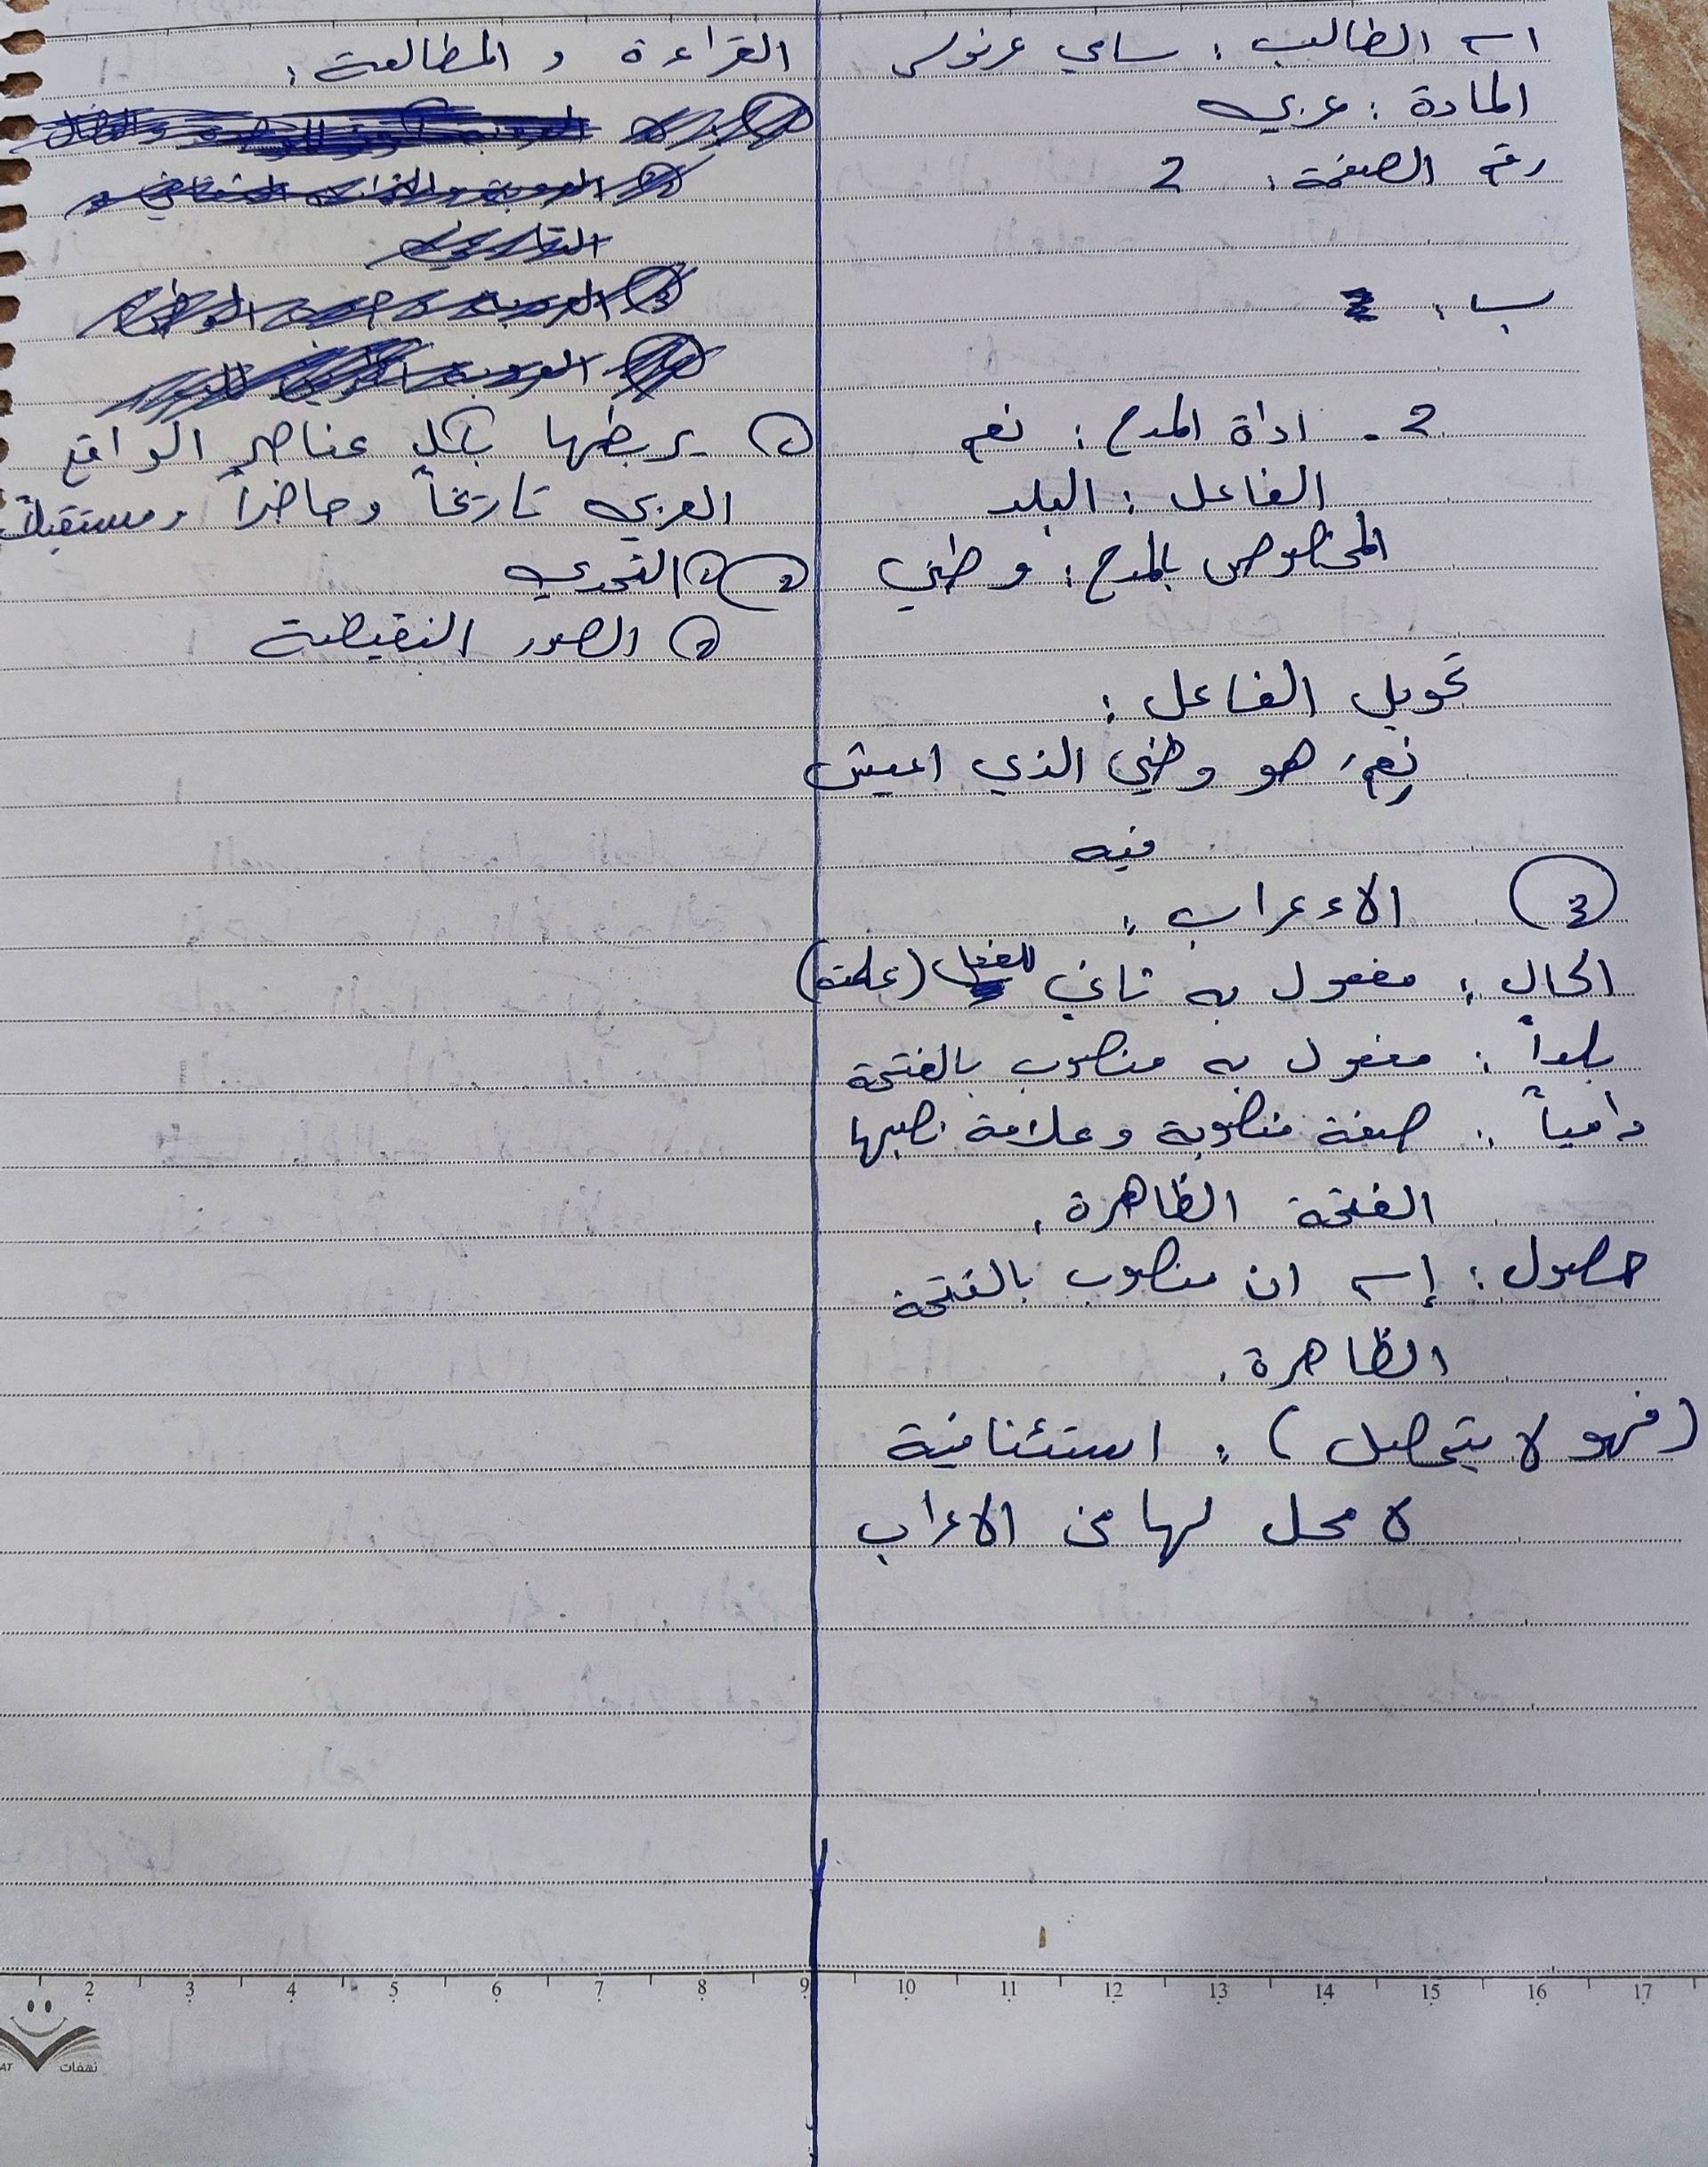 اسم الطالب : سامي عرنوس
المادة : عربي
رقم الصفحة : 2
ب :
2 - اداة المدح : نعم
الفاعل : البلد
المخصوص بالمدح : وطني
تحويل الفاعل :
نِعمَ هو وطني الذي اعيش
فيه
3 الاعراب :
الحال : مفعول به ثاني للفعل (علمته)
بلداً : مفعول به منصوب بالفتحة
دامياً : صفة منصوبة وعلامة نصبها
الفتحة الظاهرة .
حصول : إسم ان منصوب بالفتحة
الظاهرة .
(فهو لا يتحصل) : استئنافية
لا محل لها من الاعراب
القراءة و المطالعة :
1 يربطها بكل عناصر الواقع
العربي تاريخاً وحاضراً ومستقبلاً
2 1 التحدي
2 الصور النقيضة
2 3 4 5 6 7 8 9 10 11 12 13 14 15 16 17
نهفات